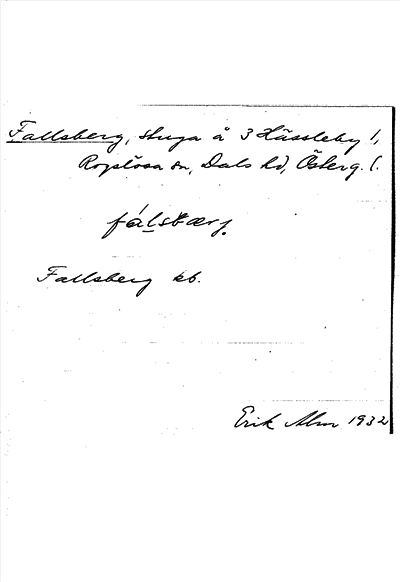 Fallsberg, stuga å 3 Hässleby /,
Rogslösa sn, Dals hd, Österg. l.
fálsbærj.
Fallsberg kb.
Erik Alm 1932